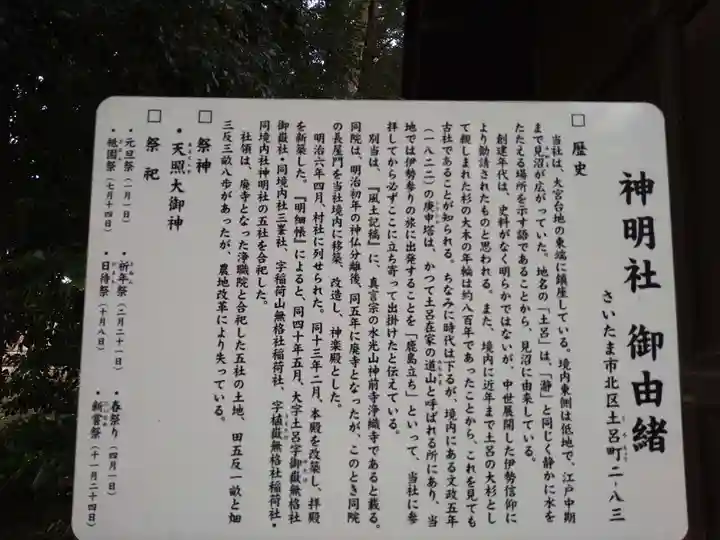 神明社 御由緒
さいたま市北区土呂町二-八-三
□ 歴史
当社は、大宮台地の東端に鎮座している。境内東側は低地で、江戸中期
まで見沼が広がっていた。地名の「土呂」は、「瀞」と同じく静かに水を
たたえる場所を示す語であることから、見沼に由来している。
創建年代は、史料がなく明らかではないが、中世展開した伊勢信仰に
より勧請されたものと思われる。また、境内に近年まで土呂の大杉とし
て親しまれた杉の大木の年輪は約八百年であったことから、これを見ても
古社であることが知られる。ちなみに時代は下るが、境内にある文政五年
(一八二二)の庚申塔は、かつて土呂在家の道山と呼ばれる所にあり、当
地では伊勢参りの旅に出発することを「鹿島立ち」といって、当社に参
拝してから必ずここに立ち寄って出掛けたと伝えている。
別当は、『風土記稿』に、真言宗の水光山神前寺浄織寺であると載る。
同院は、明治初年の神仏分離後、同五年に廃寺となったが、このとき同院
の長屋門を当社境内に移築、改造し、神楽殿とした。
明治六年四月、村社に列せられた。同十三年二月、本殿を改築し、拝殿
を新築した。『明細帳』によると、同四十年五月、大字土呂字御嶽無格社
御嶽社・同境内社三峯社、字稲荷山無格社稲荷社、字植嶽無格社稲荷社・
同境内社神明社の五社を合祀した。
社領は、廃寺となった浄職院と合祀した五社の土地、田五反一畝と畑
三反三畝八歩があったが、農地改革により失っている。
□ 祭神
・天照大御神
□ 祭祀
・元旦祭(一月一日) ・祈年祭(二月二十一日) ・春祭り(四月一日)
・祗園祭(七月十四日) ・日待祭(十月八日) ・新嘗祭(十一月二十四日)